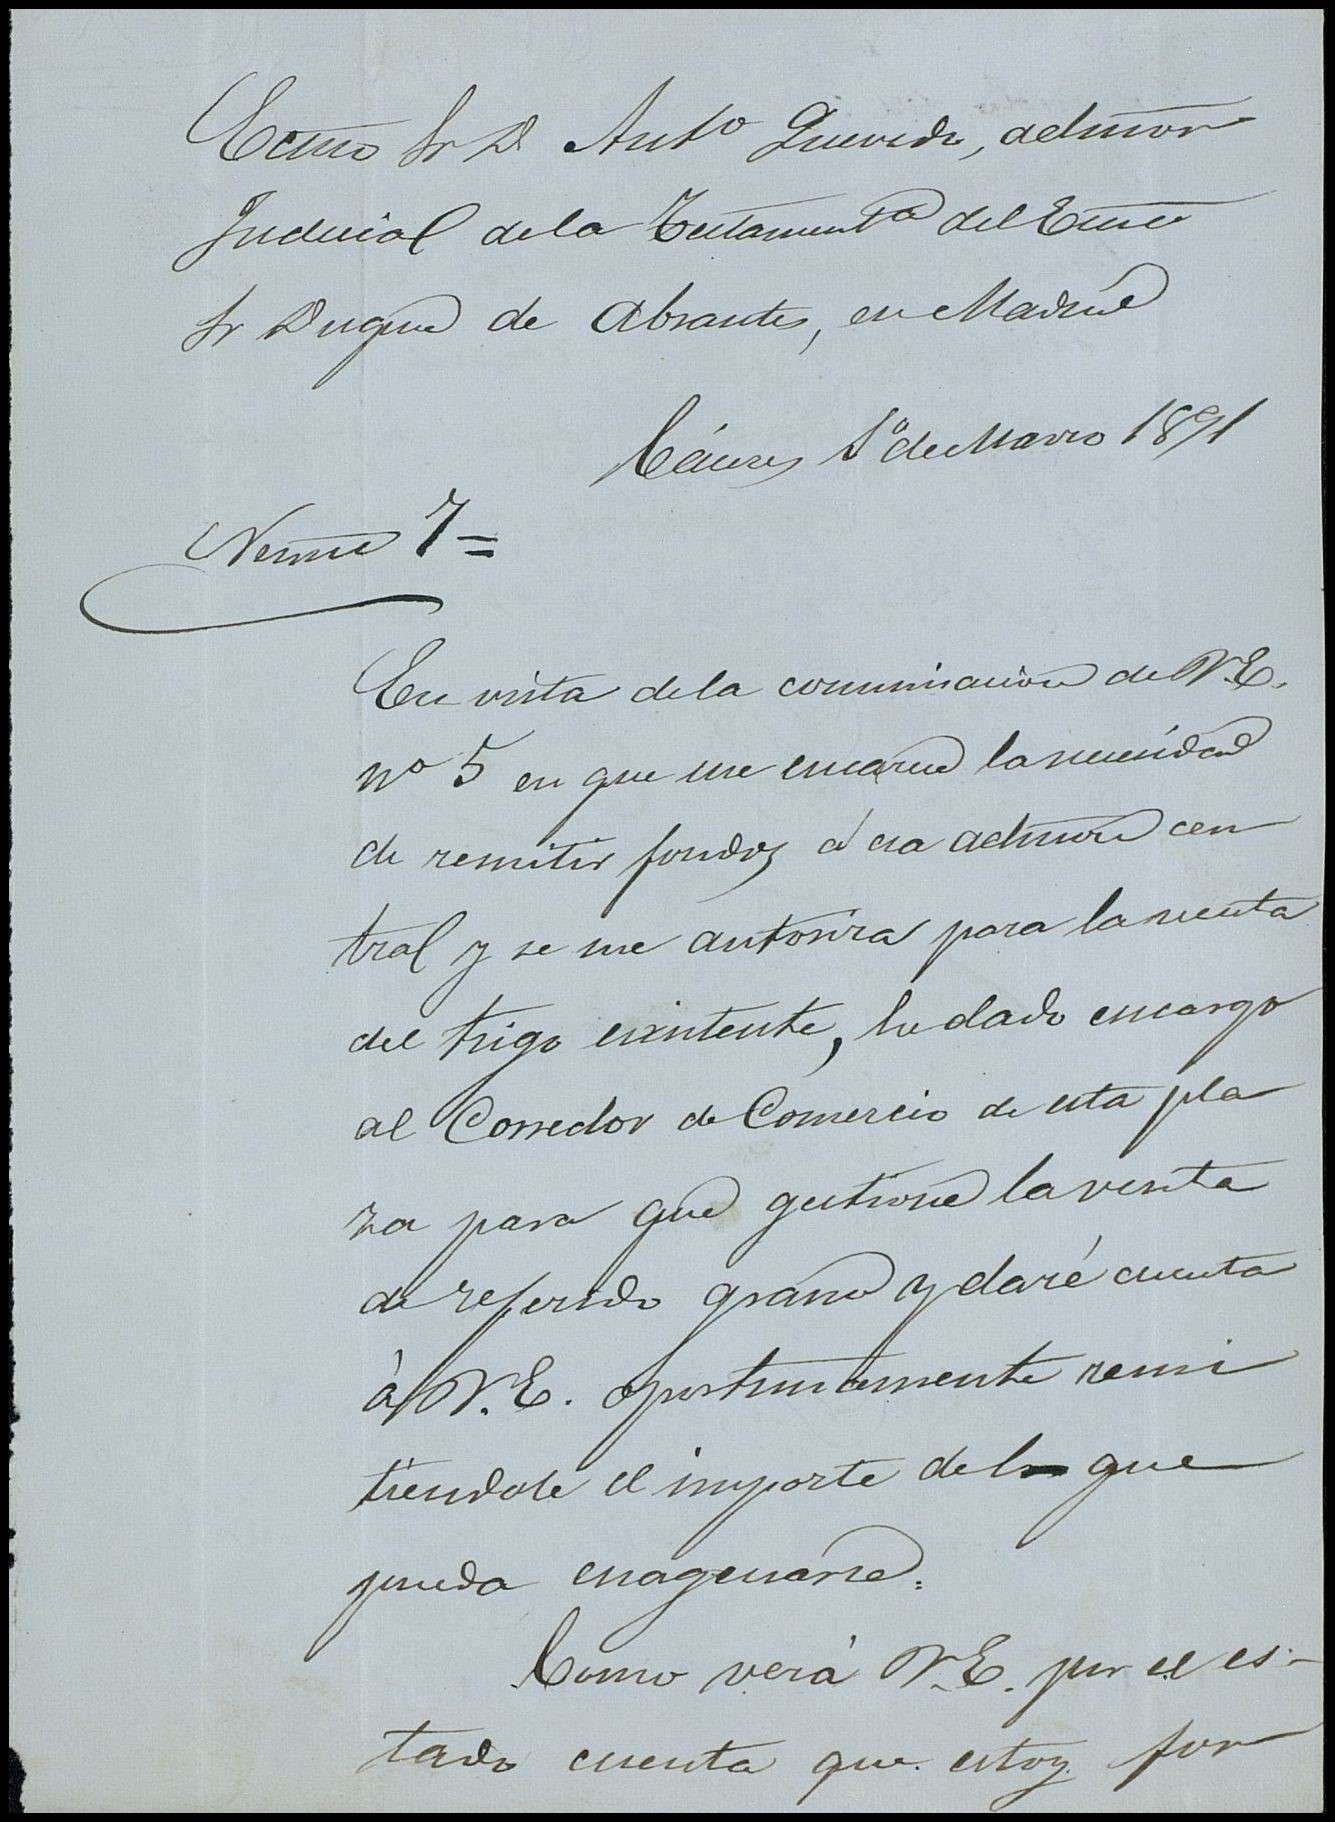 Ecmo Sr D Antº Quevedo, admor
Judicial de la Testamentª del Ecmo
Sr Duque de Abrantes, en Madrid
Cáceres 1º de Marzo 1891
Núme 7=
En vista de la comunicacion de V.E.
nº 5 en que me encarece la necesidad
de remitir fondos á esa admon cen
tral y se me autoriza para la venta
del trigo existente, he dado encargo
al Corredor de Comercio de esta pla
za para que gestione la venta
de referido grano y daré cuenta
á V.E. oportunamente remi
tiendole el importe del que
pueda enagenarse.
Como verá V.E. por el es-
tado cuenta que estoy for